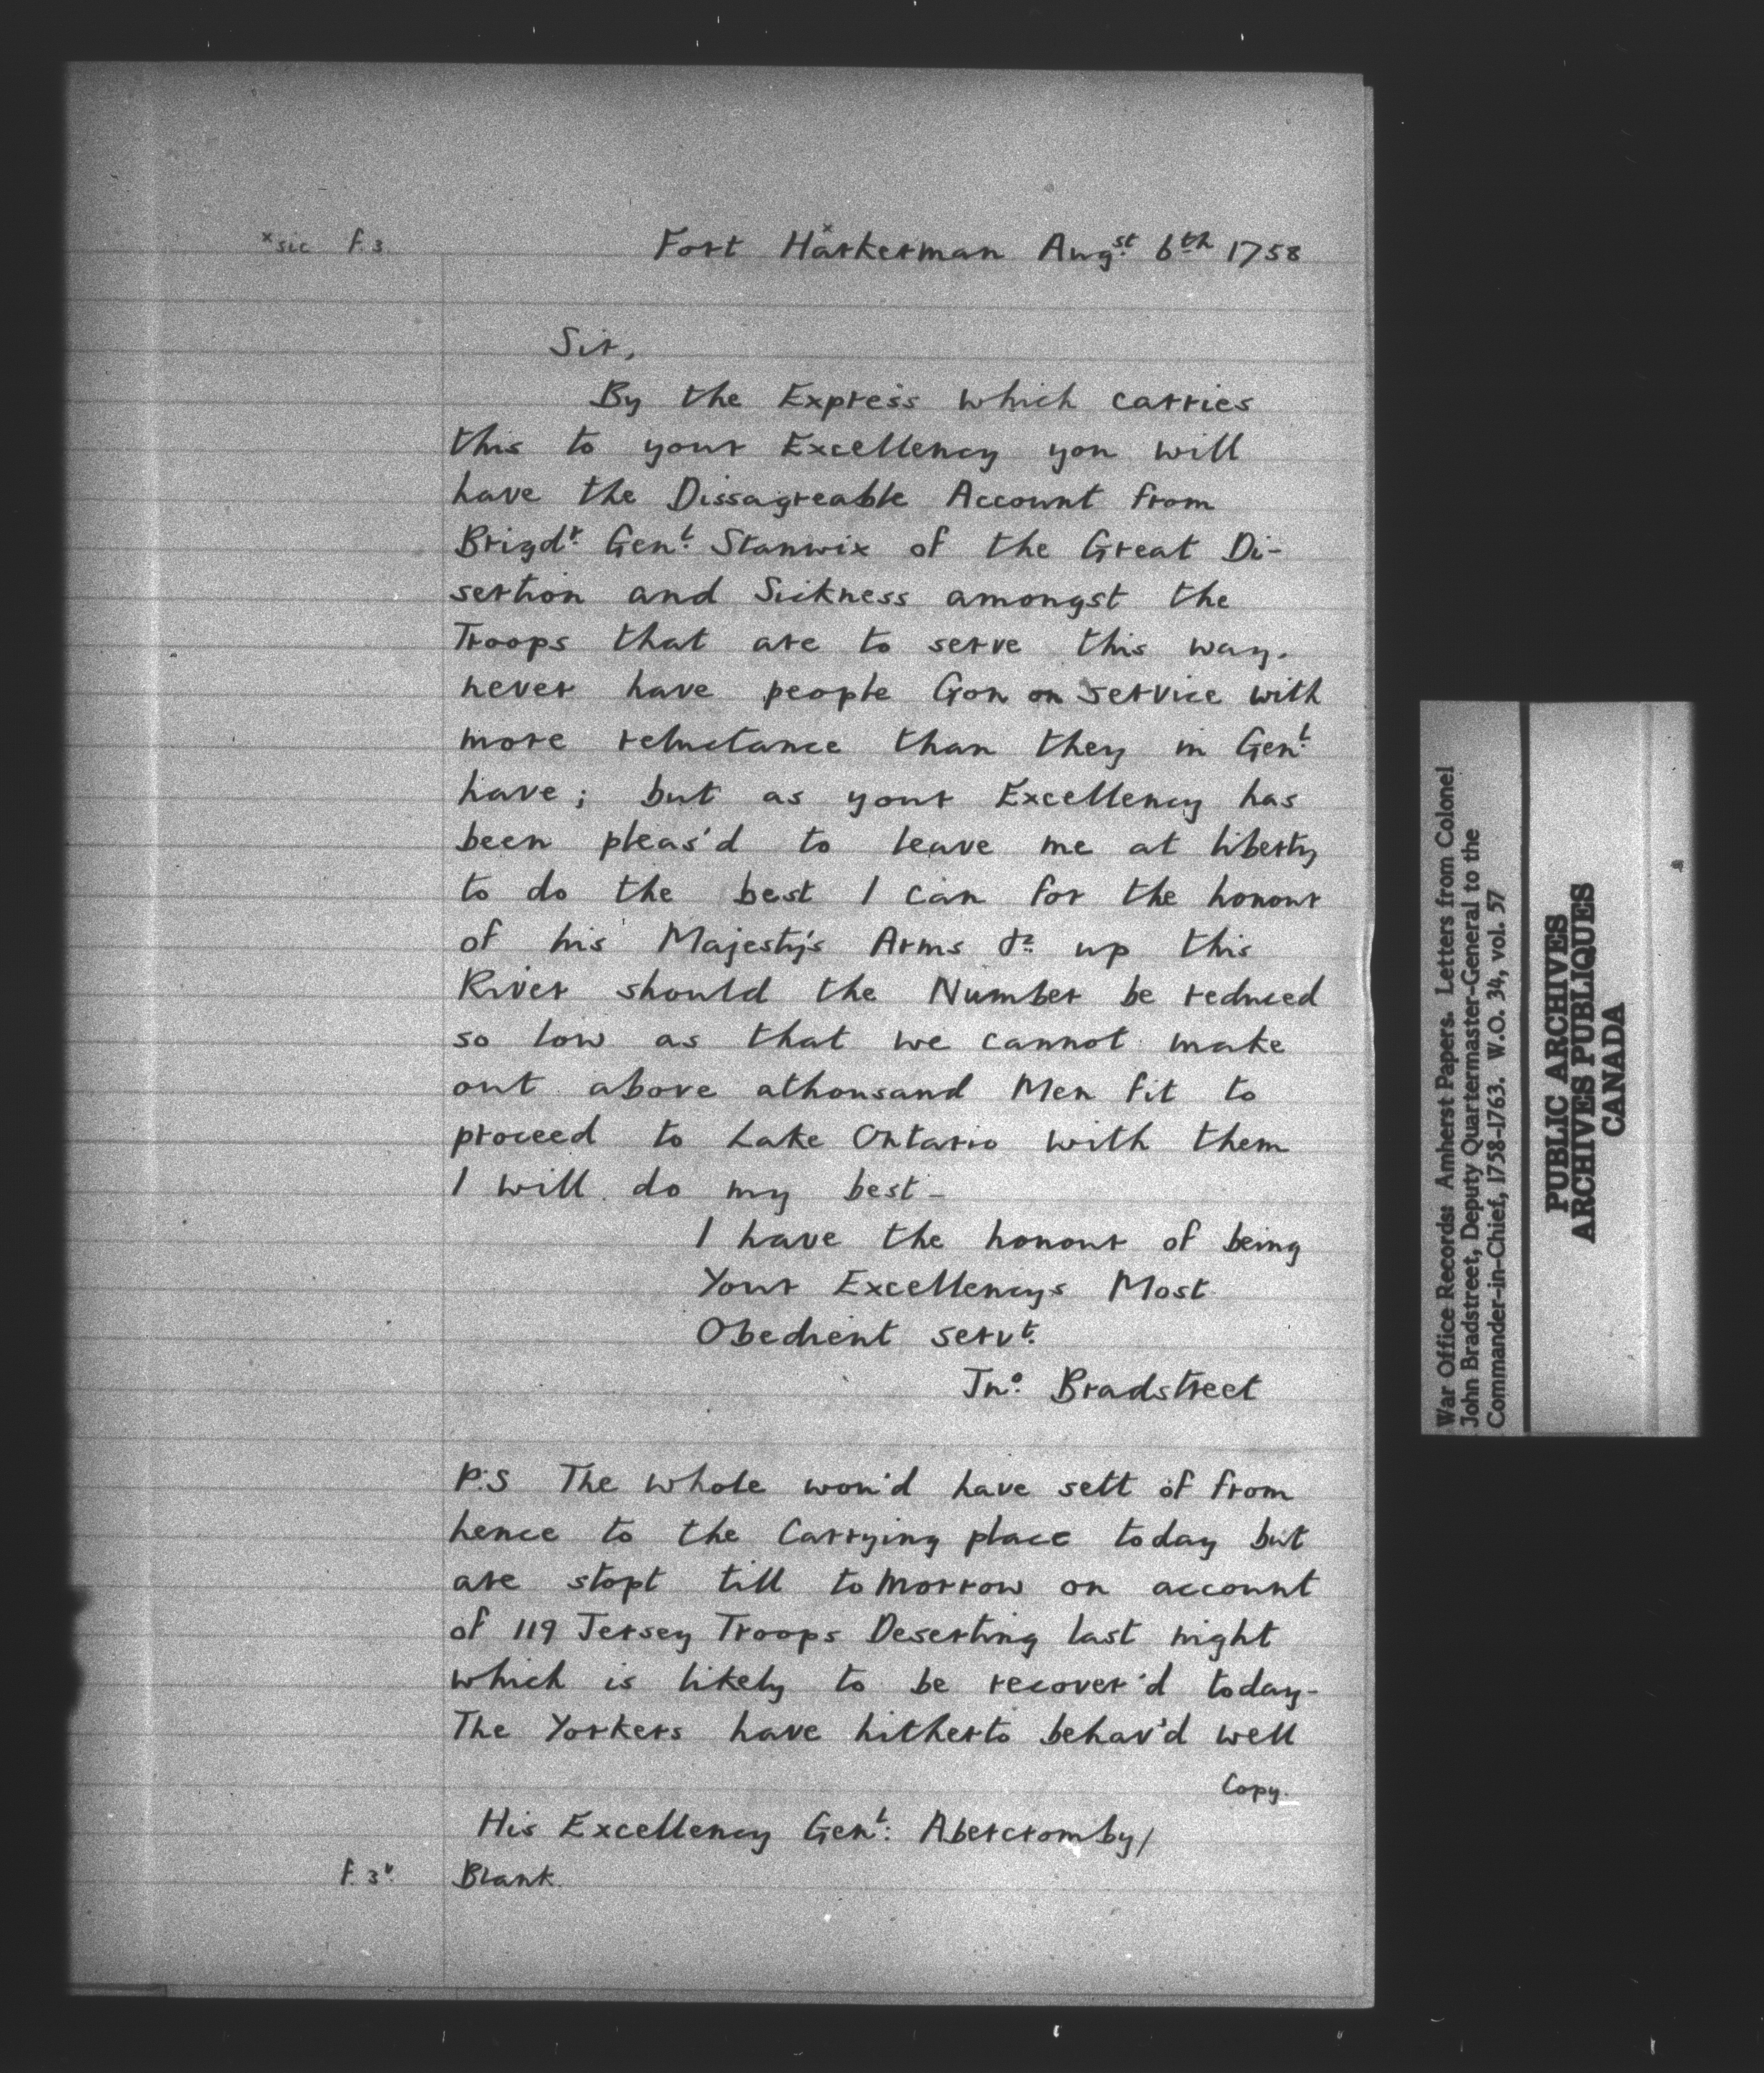 ×sic f.3
Fort Harkerman× Augst. 6th 1758
Sir,
By the Express which carries
this to your Excellency you will
have the Dissagreable Account from
Brigdr. Genl. Stanwix of the Great Di-
sertion and Sickness amongst the
Troops that are to serve this way.
never have people Gon on service with
more reluctance than they in Genl.
have; but as your Excellency has
been pleas'd to leave me at liberty
to do the best I can for the honour
of his Majesty's Arms &c. up this
River should the Number be reduced
so low as that we cannot make
out above athousand Men fit to
proceed to Lake Ontario with them
I will do my best-
I have the honour of being
Your Excellencys Most
Obedient servt.
Jno. Bradstreet
P.S The whole wou'd have sett of from
hence to the Carrying place today but
are stopt till toMorrow on account
of 119 Jersey Troops Deserting last night
which is likely to be recover'd today-
The Yorkers have hitherto behav'd well
Copy.
His Excellency Genl: Abercromby/
f. 3v. Blank.
War Office Records: Amherst Papers. Letters from Colonel
John Bradstreet, Deputy Quartermaster-General to the
Commander-in-Chief, 1758-1763. W.O. 34, vol. 57
PUBLIC ARCHIVES
ARCHIVES PUBLIQUES
CANADA